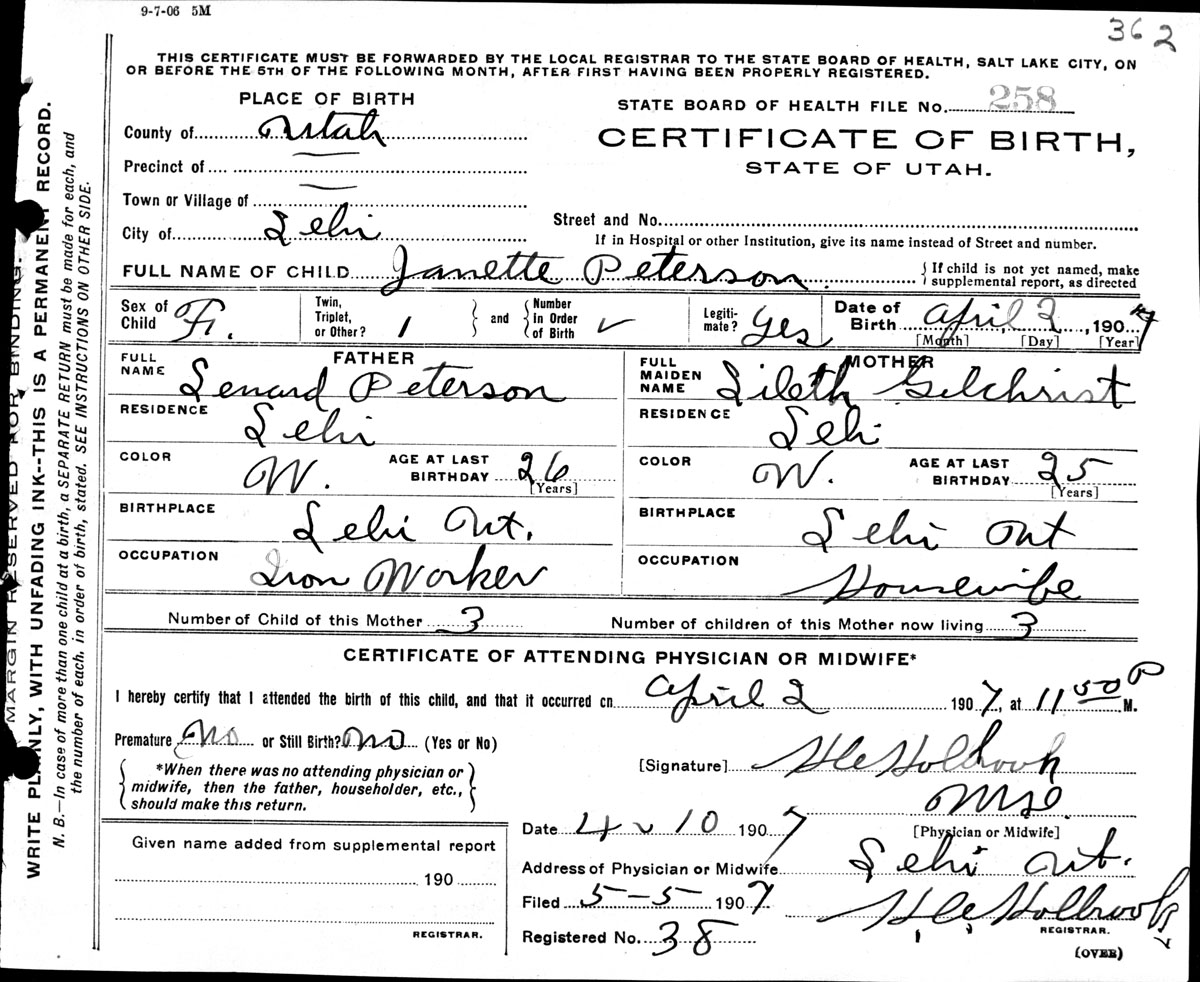 9-7-06 5M
362
THIS CERTIFICATE MUST BE FORWARDED BY THE LOCAL REGISTRAR TO THE STATE BOARD OF HEALTH, SALT LAKE CITY, ON
OR BEFORE THE 5TH OF THE FOLLOWING MONTH, AFTER FIRST HAVING BEEN PROPERLY REGISTERED.
PLACE OF BIRTH
STATE BOARD OF HEALTH FILE No. 258
County of Utah
CERTIFICATE OF BIRTH,
STATE OF UTAH.
Precinct of
Town or Village of
Street and No.
City of Lehi
If in Hospital or other Institution, give its name instead of Street and number.
FULL NAME OF CHILD Janette Peterson { If child is not yet named, make supplemental report, as directed
Sex of Child F. Twin, Triplet, or Other? 1 } and { Number in Order of Birth ✓ Legiti-mate? Yes Date of Birth April 2, 1907
[Month] [Day] [Year]
FATHER
MOTHER
FULL NAME Lenard Peterson
FULL MAIDEN NAME Lileth Gilchrist
RESIDENCE Lehi
RESIDENCE Lehi
COLOR W. AGE AT LAST BIRTHDAY 26 [Years]
COLOR W. AGE AT LAST BIRTHDAY 25 [Years]
BIRTHPLACE Lehi Ut.
BIRTHPLACE Lehi Ut
OCCUPATION Iron Worker
OCCUPATION Housewife
Number of Child of this Mother 3 Number of children of this Mother now living 3
CERTIFICATE OF ATTENDING PHYSICIAN OR MIDWIFE*
I hereby certify that I attended the birth of this child, and that it occurred on April 2 1907, at 11 50 P M.
Premature No or Still Birth? No (Yes or No)
[Signature] Holbrook
M.D.
[Physician or Midwife]
{ *When there was no attending physician or
midwife, then the father, householder, etc.,
should make this return. }
Date 4 10 1907
Given name added from supplemental report
190
REGISTRAR.
Address of Physician or Midwife Lehi Ut.
Filed 5-5 1907 Holbrook
REGISTRAR.
Registered No. 38
(OVER)
MARGIN RESERVED FOR BINDING.
WRITE PLAINLY, WITH UNFADING INK--THIS IS A PERMANENT RECORD.
N. B.—In case of more than one child at a birth, a SEPARATE RETURN must be made for each, and
the number of each, in order of birth, stated. SEE INSTRUCTIONS ON OTHER SIDE.